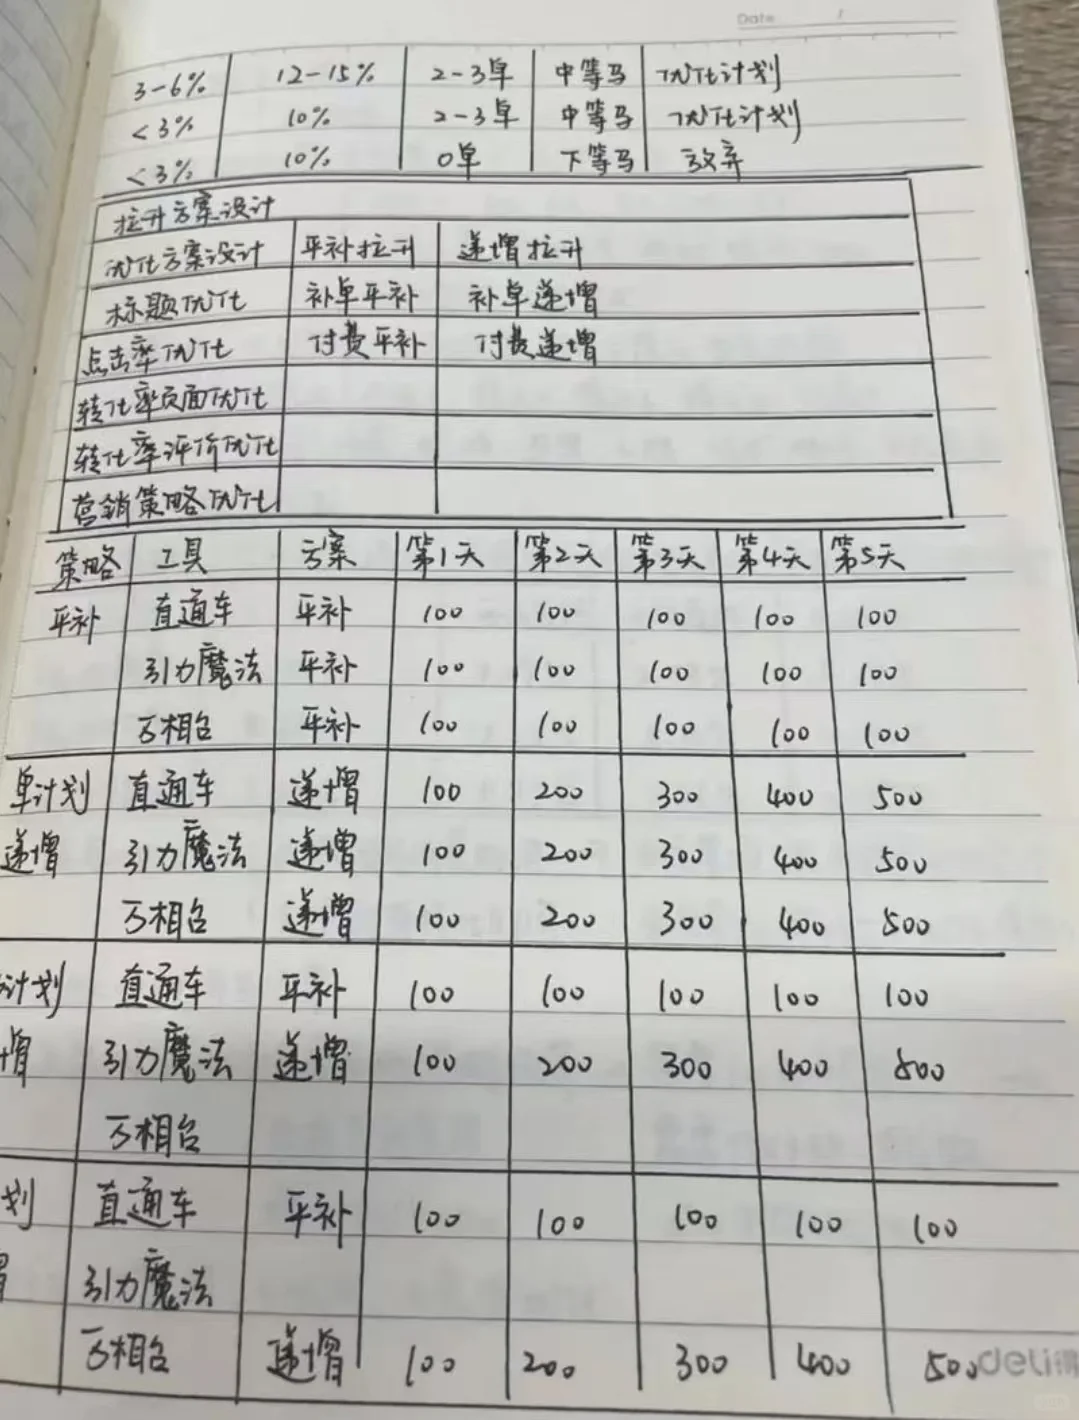 Date /
3-6% 12-15% 2-3单 中等马 优化计划
<3% 10% 2-3单 中等马 优化计划
<3% 10% 0单 下等马 放弃
拉升方案设计
优化方案设计 平补拉升 递增拉升
标题优化 补单平补 补单递增
点击率优化 付费平补 付费递增
转化率页面优化
转化率评价优化
营销策略优化
策略 工具 方案 第1天 第2天 第3天 第4天 第5天
平补 直通车 平补 100 100 100 100 100
引力魔法 平补 100 100 100 100 100
万相台 平补 100 100 100 100 100
单计划 直通车 递增 100 200 300 400 500
递增 引力魔法 递增 100 200 300 400 500
万相台 递增 100 200 300 400 500
计划 直通车 平补 100 100 100 100 100
增 引力魔法 递增 100 200 300 400 500
万相台
划 直通车 平补 100 100 100 100 100
引力魔法
万相台 递增 100 200 300 400 500
deli得